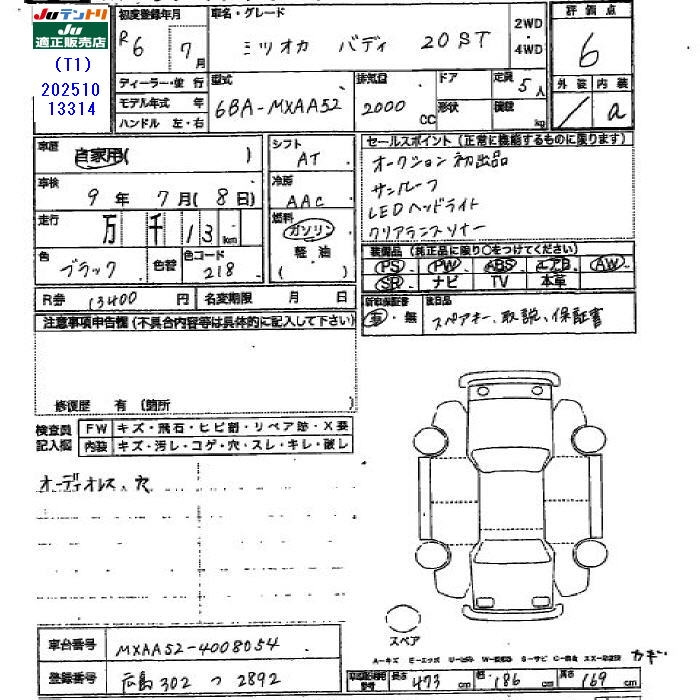 JUテントリ
適正販売店
(T1)
202510
13314
初度登録年月
R6 7月
車名・グレード
ミツオカ バディ 20ST
2WD
・
4WD
評価点
6
ディーラー・並行
モデル年式 年
ハンドル 左・右
型式
6BA-MXAA52
排気量
2000 CC
ドア
形状
定員 5人
積載 kg
外装 内装
/ a
車歴
自家用( )
車検
9年 7月(8日)
走行
万 千 13 km
色
ブラック
色替
色コード
218
シフト
AT
冷房
AAC
燃料
ガソリン
軽油
( )
セールスポイント(正常に機能するものに限ります)
オークション初出品
サンルーフ
LEDヘッドライト
クリアランスソナー
装備品(純正品に限り○をつけてください)
PS PW ABS エアB AW
SR ナビ TV 本革
R券 13400円
名変期限 月 日
新車保証書
有・無
後日品
スペアキー、取説、保証書
注意事項申告欄(不具合内容等は具体的に記入して下さい)
修復歴 有(箇所
検査員
記入欄
FW キズ・飛石・ヒビ割・リペア跡・X要
内装 キズ・汚レ・コゲ・穴・スレ・キレ・破レ
オーディオレス、穴
スペア
A-キズ E-エクボ U-ヒズミ W-補修跡 S-サビ C-腐食
車台番号 MXAA52-4008054
登録番号 広島 302 つ 2892
長さ 473 cm 幅 186 cm 高さ 169 cm